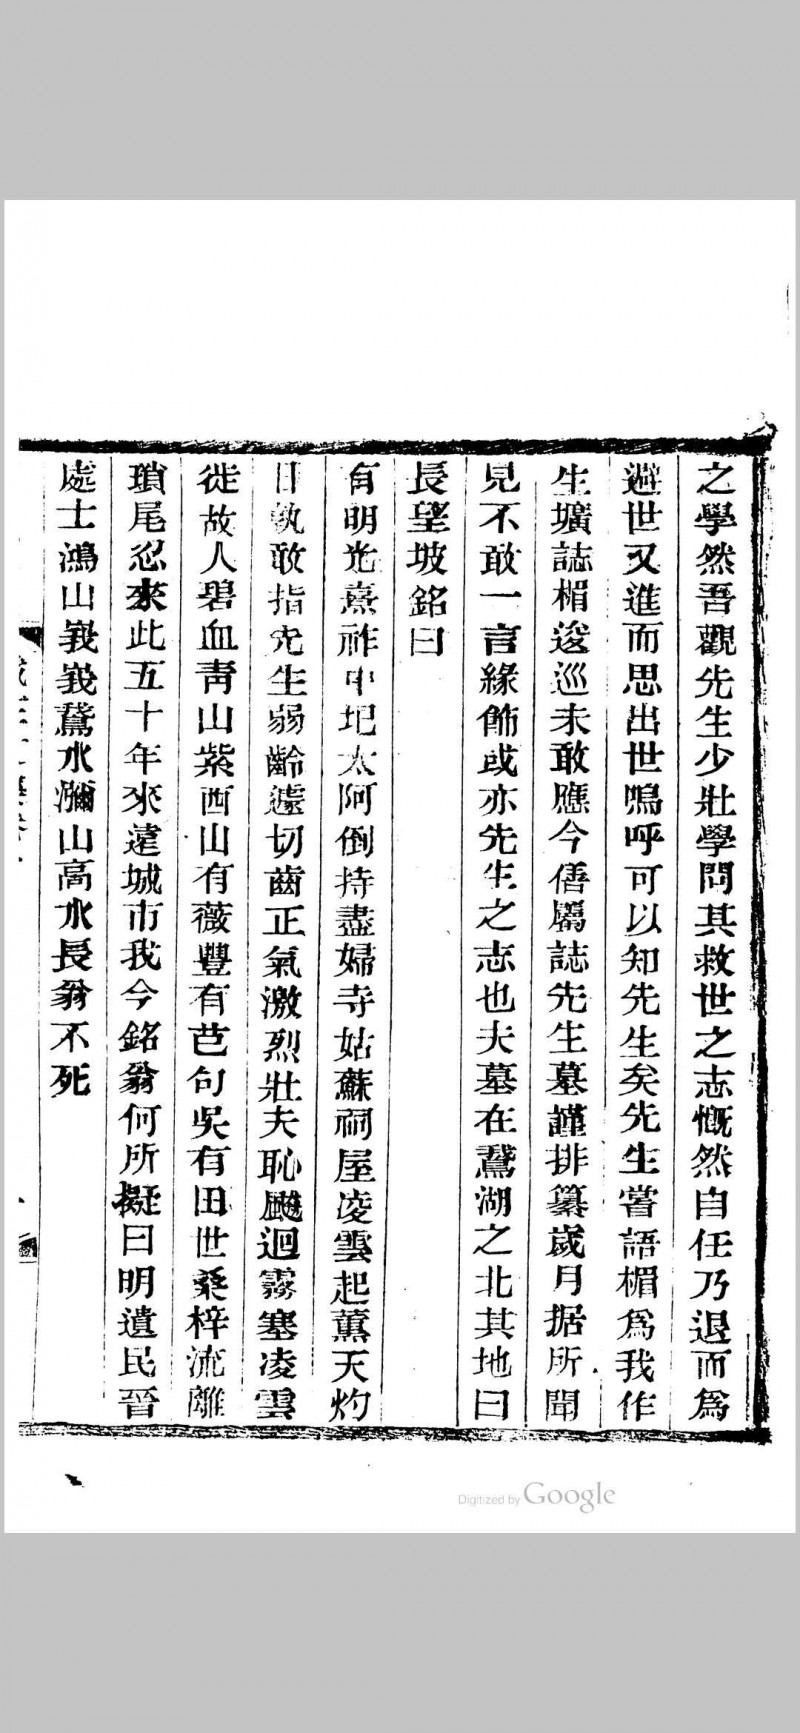 之學然吾觀先生少壯學問其救世之志慨然自任乃退而爲
避世又進而思出世嗚呼可以知先生矣先生嘗語楣爲我作
生壙誌楣逡巡未敢應今僑屬誌先生墓謹排纂歲月据所聞
見不敢一言緣飾或亦先生之志也夫墓在鵞湖之北其地曰
長望坡銘曰
有明光熹祚中圮太阿倒持盡婦寺姑蘇祠屋凌雲起薰天灼
日孰敢指先生弱齡遽切齒正氣激烈壯夫恥飇迴霧塞凌雲
徙故人碧血靑山紫西山有薇豐有芑句吳有田世桑梓流離
瑣尾忍來此五十年來遠城市我今銘翁何所擬曰明遺民晉
處士鴻山峩峩鵞水瀰山高水長翁不死
Digitized by Google